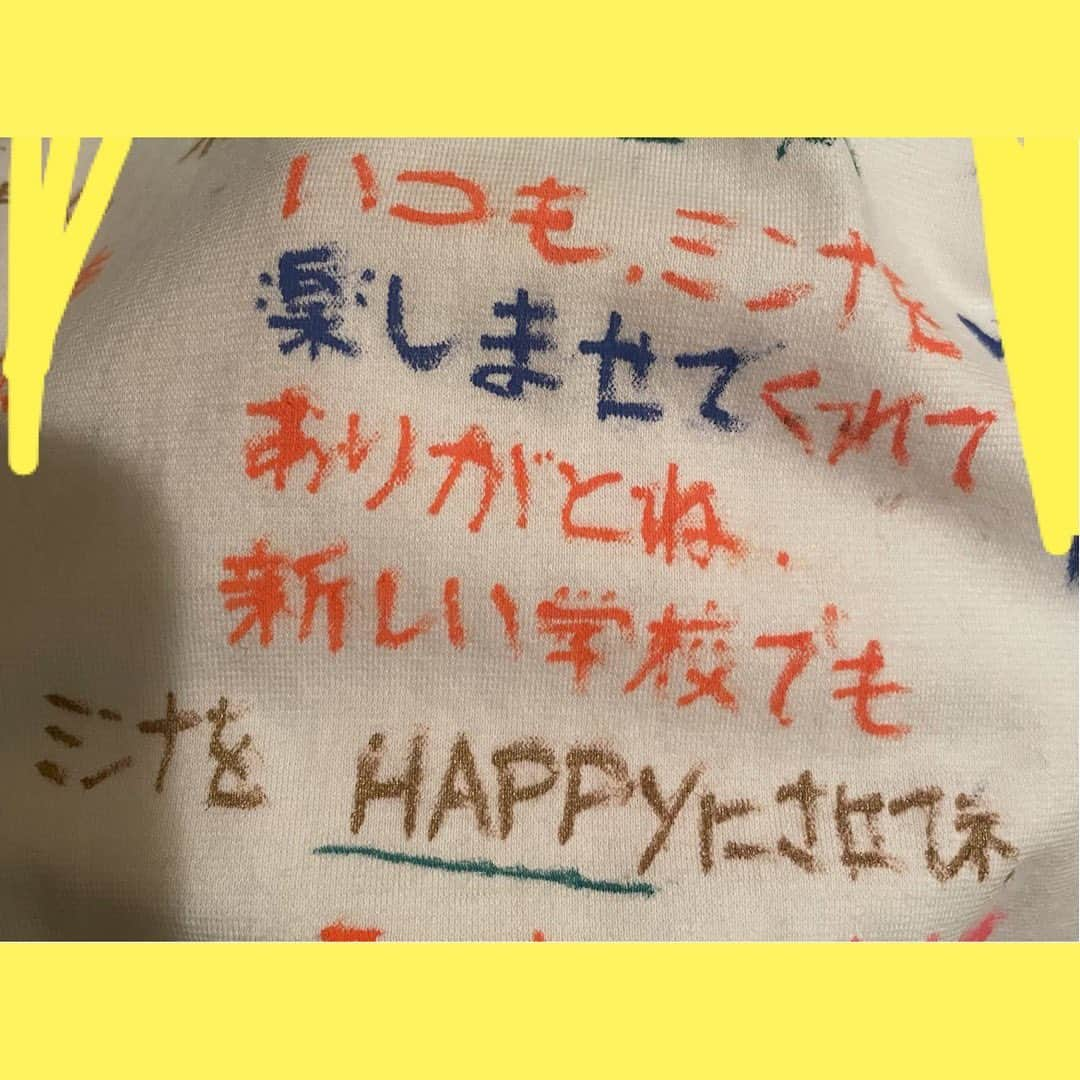 いつも、ミンナを
楽しませてくれて
ありがとね.
新しい学校でも
ミンナを HAPPYにさせてネ